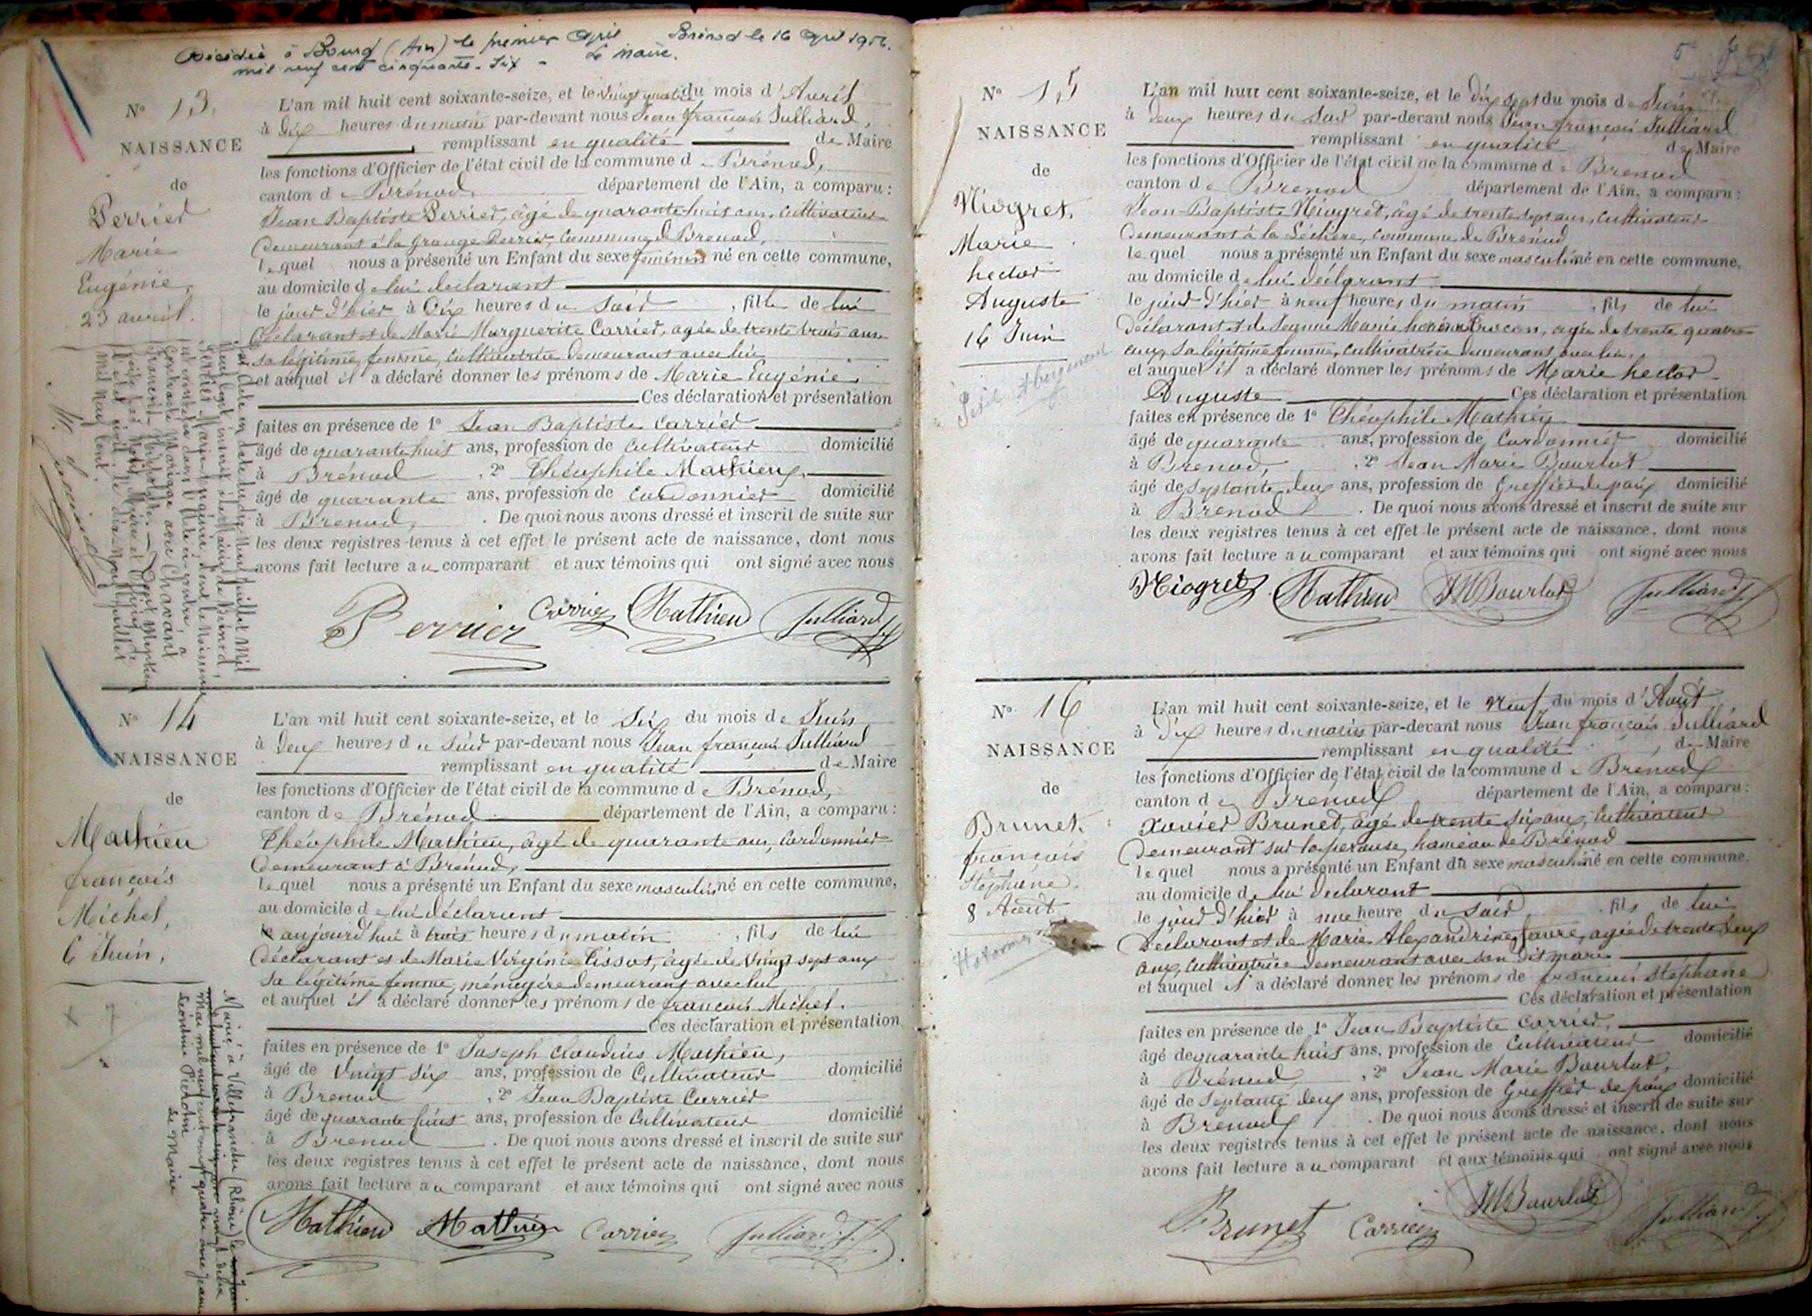 Décédée à Bourg (Ain) le premier Avril
mil neuf cent cinquante-six -
Brénod le 16 Avril 1956.
Le Maire.
N° 13.
NAISSANCE
de
Perrier
Marie
Eugénie,
23 avril.
L'an mil huit cent soixante-seize, et le vingt quatre du mois d'Avril
à dix heures du matin par-devant nous Jean françois Julliard,
remplissant en qualité de Maire
les fonctions d'Officier de l'état civil de la commune de Brénod,
canton de Brénod département de l'Ain, a comparu :
Jean Baptiste Perrier, âgé de quarante huit ans, cultivateur
demeurant à la grange Perrier, commune de Brénod,
lequel nous a présenté un Enfant du sexe féminin né en cette commune,
au domicile de lui déclarant
le jour d'hier à dix heures du soir, fille de lui
déclarant et de Marie Marguerite Carrier, agée de trente trois ans
sa légitime femme, cultivatrice demeurant avec lui,
et auquel il a déclaré donner les prénoms de Marie Eugénie,
Ces déclaration et présentation
faites en présence de 1° Jean Baptiste Carrier
âgé de quarante huit ans, profession de cultivateur domicilié
à Brénod, 2° Théophile Mathieu,
âgé de quarante ans, profession de cordonnier domicilié
à Brénod, . De quoi nous avons dressé et inscrit de suite sur
les deux registres tenus à cet effet le présent acte de naissance, dont nous
avons fait lecture au comparant et aux témoins qui ont signé avec nous
Perrier Carrier Mathieu Julliard
N° 14
NAISSANCE
de
Mathieu
françois
Michel,
6 Juin,
Marié à Villefranche (Rhône) le
mai mil neuf cent quatre avec Jeanne
Léontine Pierdin
Le Maire
L'an mil huit cent soixante-seize, et le six du mois de Juin
à deux heures du soir par-devant nous Jean françois Julliard
remplissant en qualité de Maire
les fonctions d'Officier de l'état civil de la commune de Brénod,
canton de Brénod département de l'Ain, a comparu :
Théophile Mathieu, âgé de quarante ans, cordonnier
demeurant à Brénod,
lequel nous a présenté un Enfant du sexe masculin né en cette commune,
au domicile de lui déclarant
aujourd'hui à trois heures du matin, fils de lui
déclarant et de Marie Virginie Tissot, âgée de vingt sept ans
sa légitime femme, ménagère demeurant avec lui
et auquel il a déclaré donner les prénoms de françois Michel.
Ces déclaration et présentation
faites en présence de 1° Joseph Claudius Mathieu,
âgé de vingt six ans, profession de Cultivateur domicilié
à Brénod, 2° Jean Baptiste Carrier
âgé de quarante huit ans, profession de Cultivateur domicilié
à Brénod . De quoi nous avons dressé et inscrit de suite sur
les deux registres tenus à cet effet le présent acte de naissance, dont nous
avons fait lecture au comparant et aux témoins qui ont signé avec nous
Mathieu Mathieu Carrier Julliard
N° 15
NAISSANCE
de
Niogret,
Marie
hector
Auguste
16 Juin
L'an mil huit cent soixante-seize, et le dix sept du mois de Juin
à deux heures du soir par-devant nous Jean françois Julliard
remplissant en qualité de Maire
les fonctions d'Officier de l'état civil de la commune de Brénod
canton de Brénod département de l'Ain, a comparu :
Jean-Baptiste Niogret, âgé de trente sept ans, cultivateur
demeurant à la Léchère, commune de Brénod
lequel nous a présenté un Enfant du sexe masculin né en cette commune,
au domicile de lui déclarant
le jour d'hier à neuf heures du matin, fils de lui
déclarant et de Jeanne Marie Brocon, agée de trente quatre
ans, sa légitime femme, cultivatrice demeurant avec lui.
et auquel il a déclaré donner les prénoms de Marie hector
Auguste Ces déclaration et présentation
faites en présence de 1° Théophile Mathieu
âgé de quarante ans, profession de Cordonnier domicilié
à Brénod, 2° Jean Marie Bourlot
âgé de septante deux ans, profession de Greffier de paix domicilié
à Brénod . De quoi nous avons dressé et inscrit de suite sur
les deux registres tenus à cet effet le présent acte de naissance, dont nous
avons fait lecture au comparant et aux témoins qui ont signé avec nous
Niogret Mathieu JM Bourlot Julliard
N° 16
NAISSANCE
de
Brunet,
françois
Stéphane.
8 Août
L'an mil huit cent soixante-seize, et le neuf du mois d'Août
à dix heures du matin par-devant nous Jean françois Julliard
remplissant en qualité de Maire
les fonctions d'Officier de l'état civil de la commune de Brénod
canton de Brénod département de l'Ain, a comparu :
Xavier Brunet, âgé de trente six ans, Cultivateur
demeurant sur laperouse, hameau de Brénod
lequel nous a présenté un Enfant du sexe masculin né en cette commune,
au domicile de lui déclarant
le jour d'hier à une heure du soir, fils de lui
déclarant et de Marie Alexandrine favre, agée de trente deux
ans, cultivatrice demeurant avec son dit mari
et auquel il a déclaré donner les prénoms de françois Stéphane
Ces déclaration et présentation
faites en présence de 1° Jean Baptiste Carrier,
âgé de quarante huit ans, profession de Cultivateur domicilié
à Brénod, 2° Jean Marie Bourlot,
âgé de septante deux ans, profession de Greffier de paix domicilié
à Brénod . De quoi nous avons dressé et inscrit de suite sur
les deux registres tenus à cet effet le présent acte de naissance, dont nous
avons fait lecture au comparant et aux témoins qui ont signé avec nous
Brunet Carrier JM Bourlot Julliard